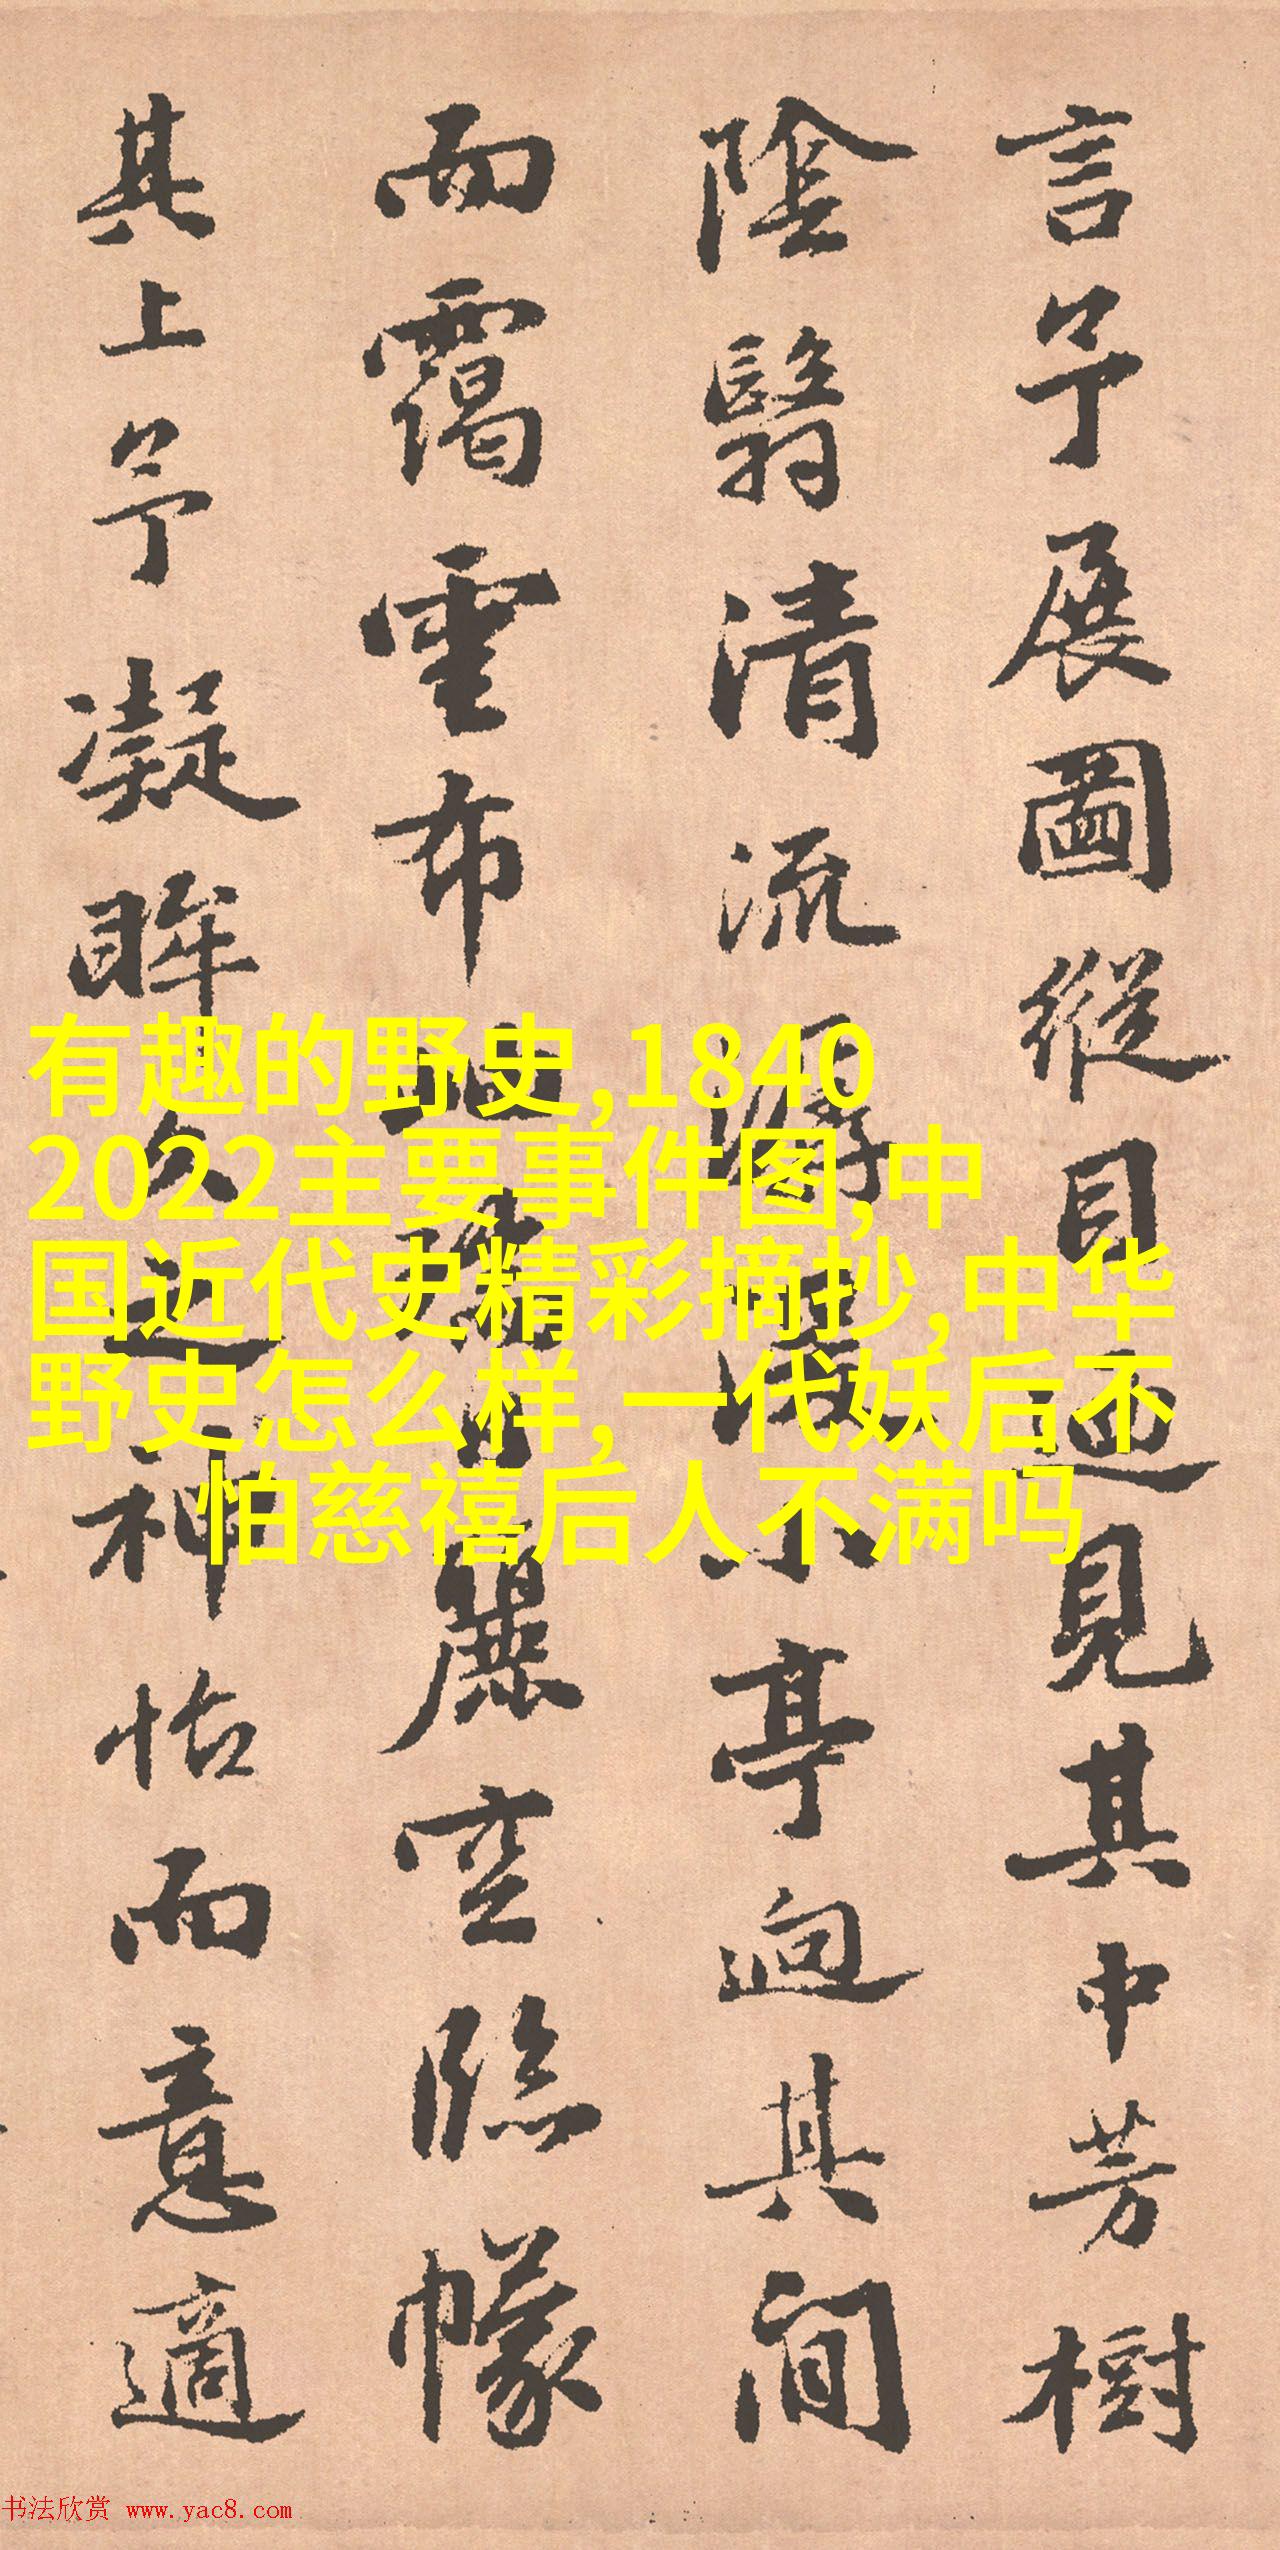 言予展圖縱目見其中芳樹
陰翳清流潺湲小亭其間
而靄雲布地日麗空臨幪
其上予凝眸久之神怡而意適
有趣的野史,1840
2022主要事件图,中
国近代史精彩摘抄,中华
野史怎么样,一代妖后不
怕慈禧后人不满吗
书法欣赏 www.yac8.com